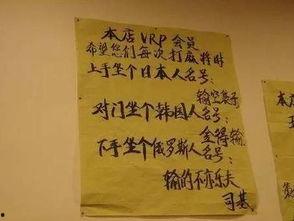 本店VRP会员
希望您们每次打麻将时
上手坐个日本人名号:
输空袋子
对门坐个韩国人名号:
金得输
下手坐个俄罗斯人名号:
输的不亦乐夫
司基
本